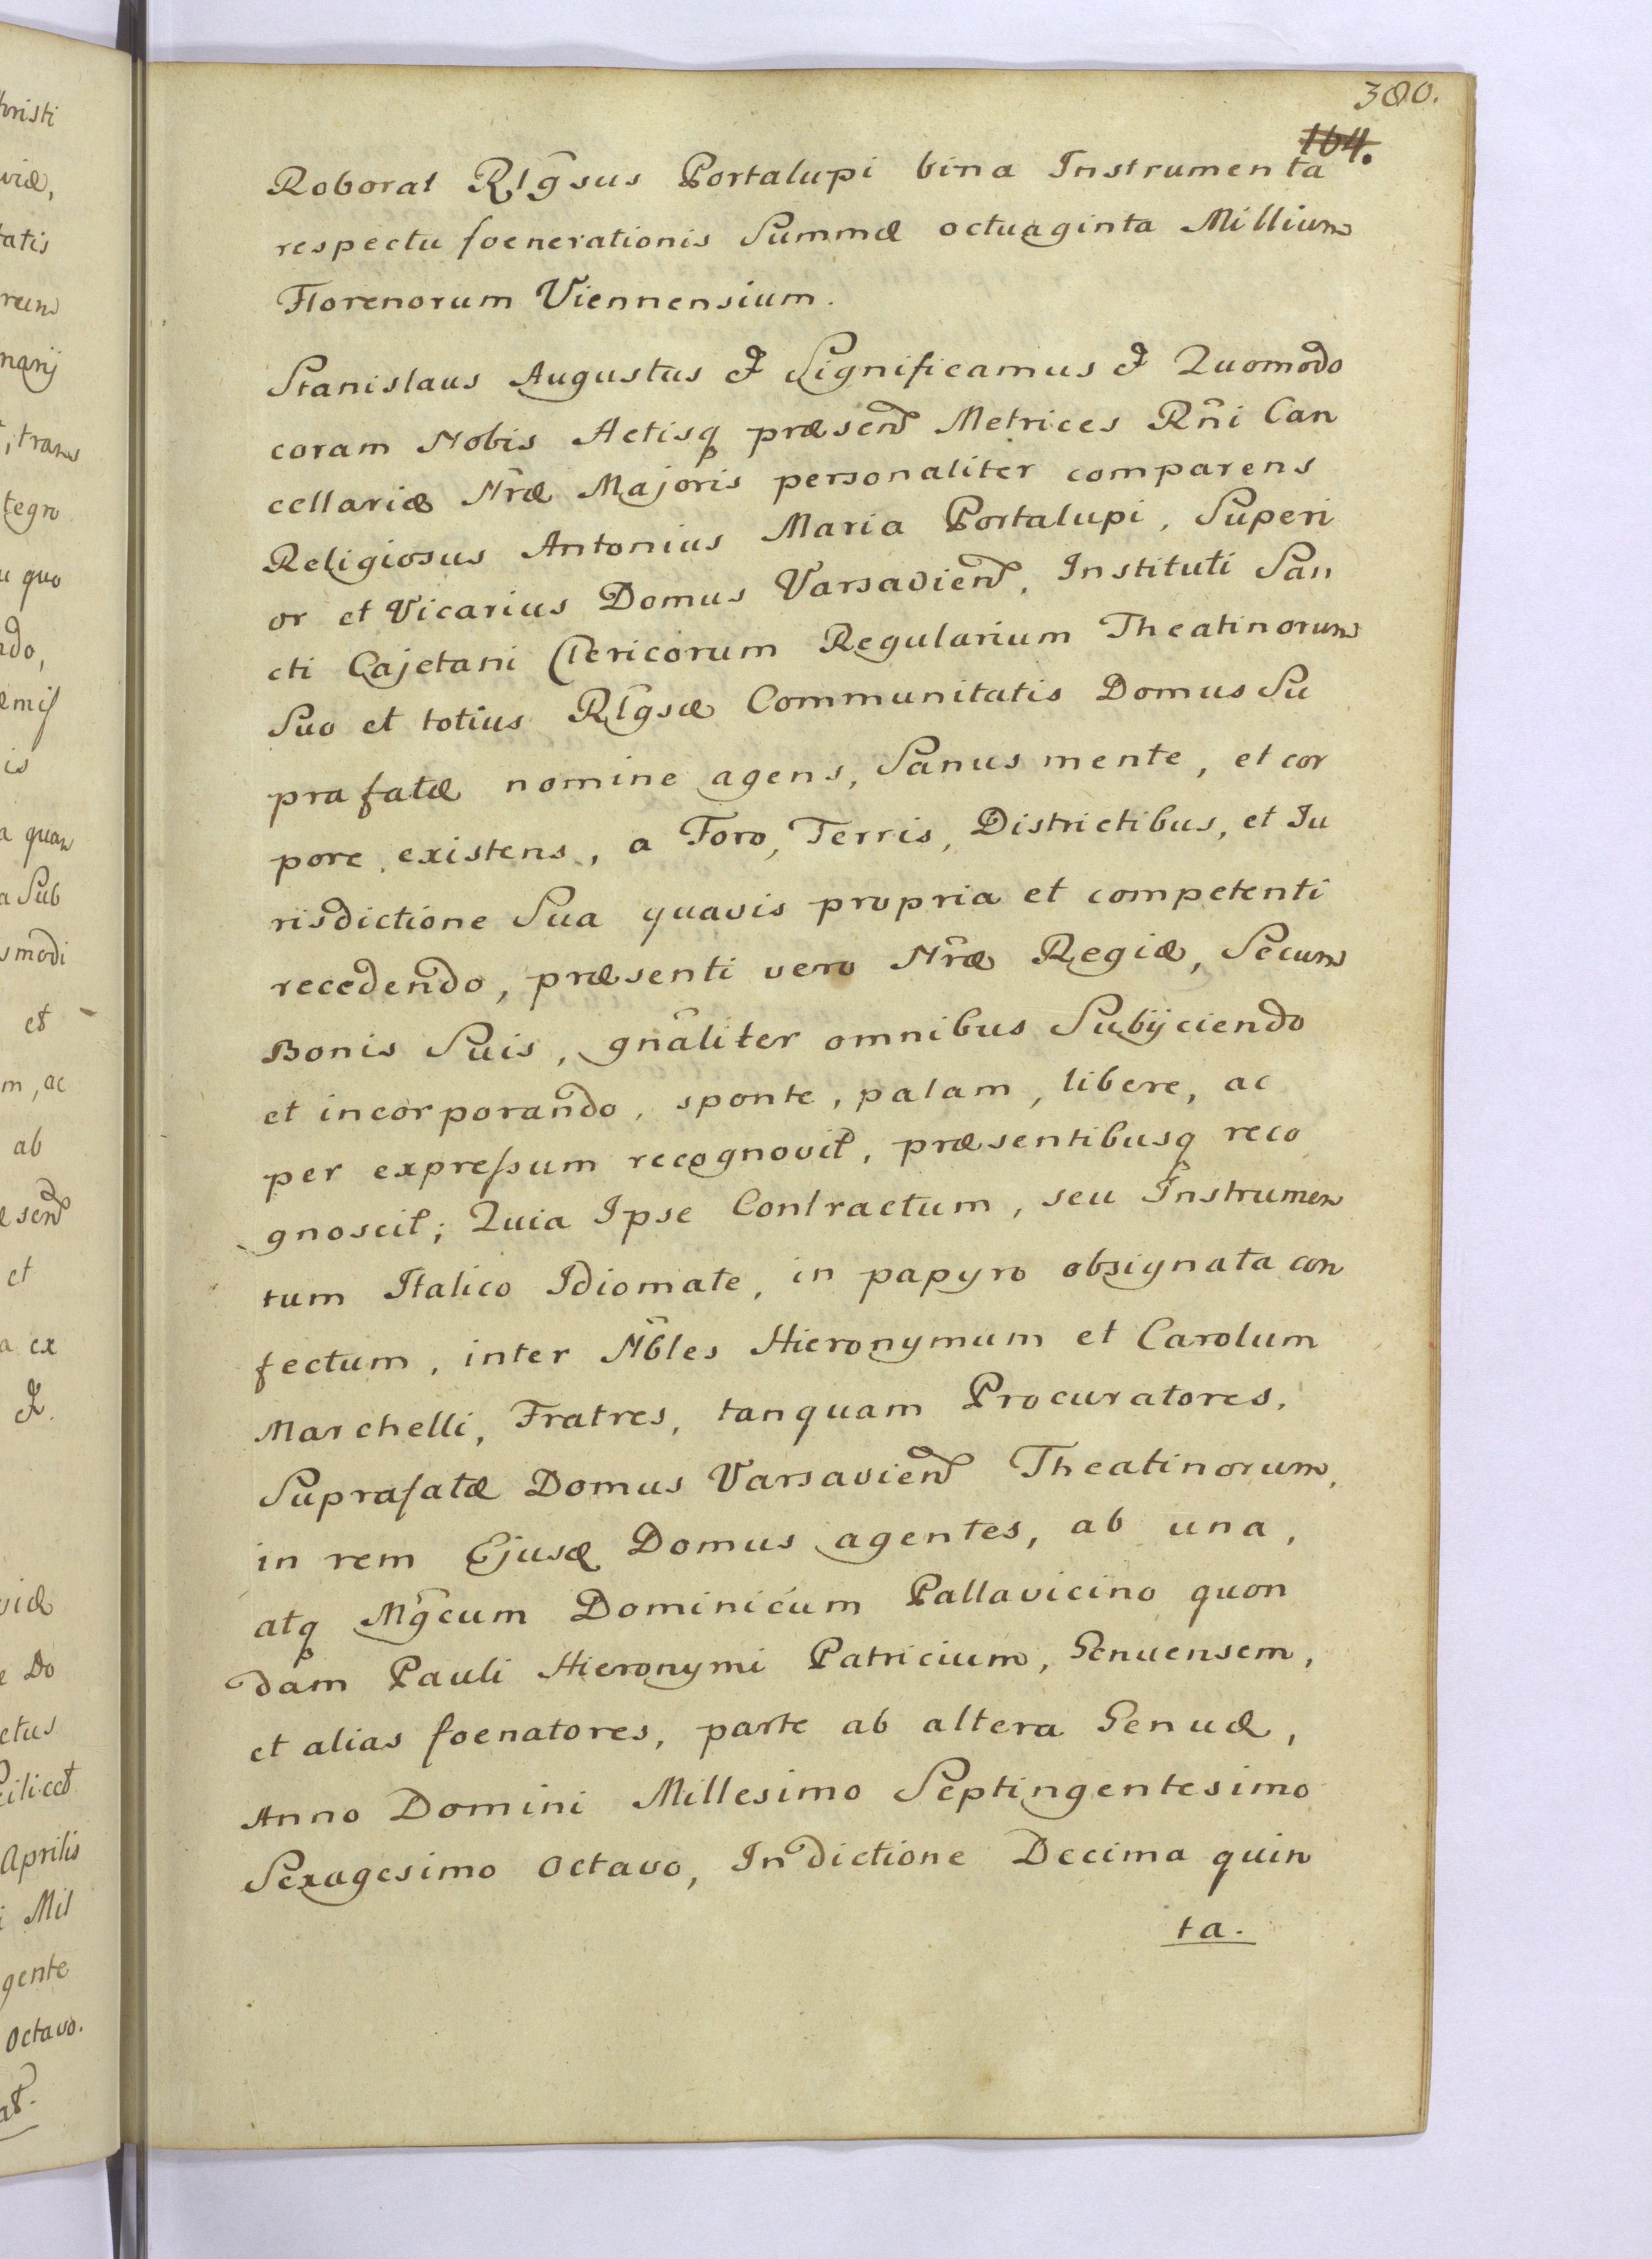 380.
164.
Roborat Rlgsus Portalupi bina Instrumenta
respectu foenerationis Summæ octuaginta Millium
Florenorum Viennensium.
Stanislaus Augustus & Significamus & Quomodo
coram Nobis Actisq præsen Metrices Rni Can
cellariæ Nræ Majoris personaliter comparens
Religiosus Antonius Maria Portalupi, Superi
or et Vicarius Domus Varsavien, Instituti San
cti Cajetani Clericorum Regularium Theatinorum
Suo et totius Rlgsæ Communitatis Domus Su
prafatæ nomine agens, Sanus mente, et cor
pore existens, a Foro, Terris, Districtibus, et Ju
risdictione Sua quavis propria et competenti
recedendo, præsenti vero Nræ Regiæ, Secum
Bonis Suis, gnaliter omnibus Subijciendo
et incorporando, sponte, palam, libere, ac
per expressum recognovit, præsentibusq reco
gnoscit; Quia Ipse Contractum, seu Instrumen
tum Italico Idiomate, in papyro obsignata con
fectum, inter Nbles Hieronymum et Carolum
Marchelli, Fratres, tanquam Procuratores,
Suprafatæ Domus Varsavien Theatinorum,
in rem Ejusd Domus agentes, ab una,
atq Mgcum Dominicum Pallavicino quon
dam Pauli Hieronymi Patricium, Genuensem,
et alias foenatores, parte ab altera Genuæ,
Anno Domini Millesimo Septingentesimo
Sexagesimo octavo, Indictione Decima quin
ta.